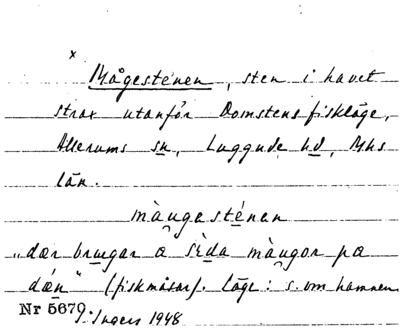 x
Mågesténen, sten i havet
strax utanför Domstens fiskläge,
Allerums sn, Luggude hd, Mhs
län.
màu̯gesténen
"dær bru̯egar a sèda màu̯gor pa
dǽn" (fiskmåsar). Läge: s. om hamnen
Nr 5679. Ingers 1948